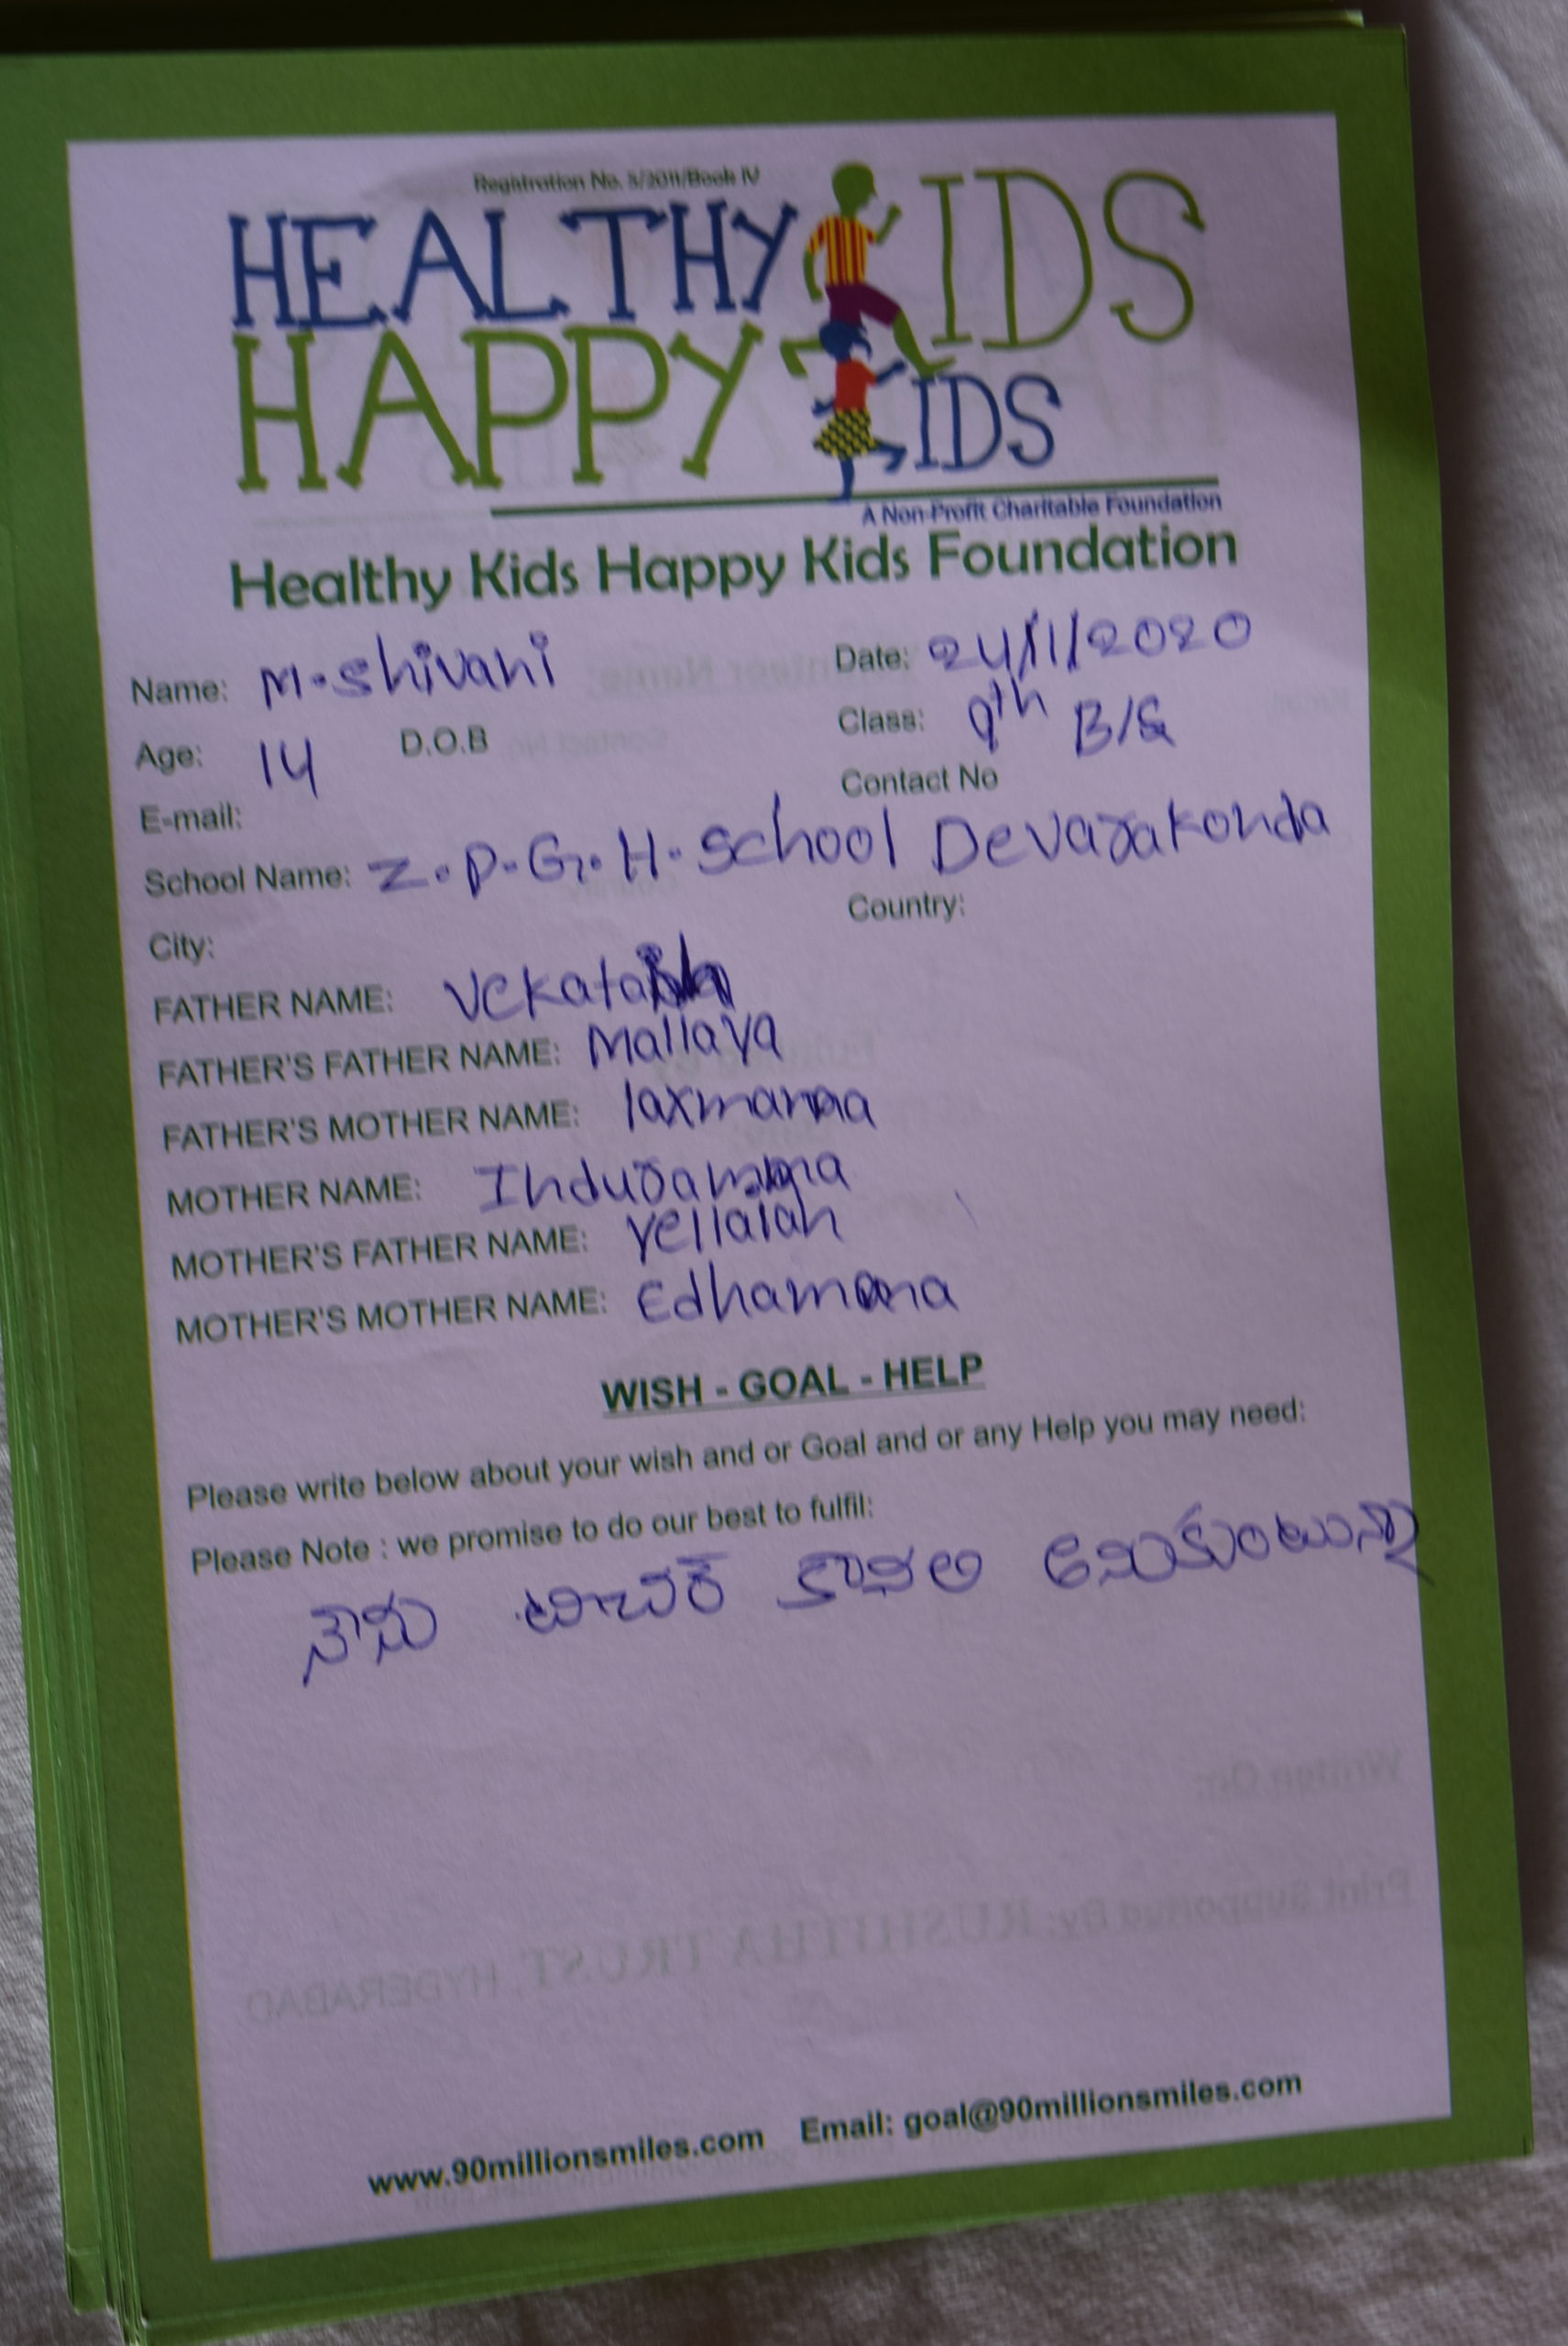 Registration No. 5/2011/Book IV
HEALTHY KIDS
HAPPY KIDS
A Non-Profit Charitable Foundation
Healthy Kids Happy Kids Foundation
Name: M.Shivani Date: 24/1/2020
Age: 14 D.O.B Class: 9th B/S
E-mail: Contact No
School Name: Z.P.G.H.School Devarakonda
City: Country:
FATHER NAME:
FATHER'S FATHER NAME: Mallaya
FATHER'S MOTHER NAME: laxmamma
MOTHER NAME:
MOTHER'S FATHER NAME: Yellaiah
MOTHER'S MOTHER NAME: Edhamma
WISH - GOAL - HELP
Please write below about your wish and or Goal and or any Help you may need:
Please Note : we promise to do our best to fulfil:
నాను టిచర్ కావలి అనుకుంటున్నా
www.90millionsmiles.com Email: goal@90millionsmiles.com